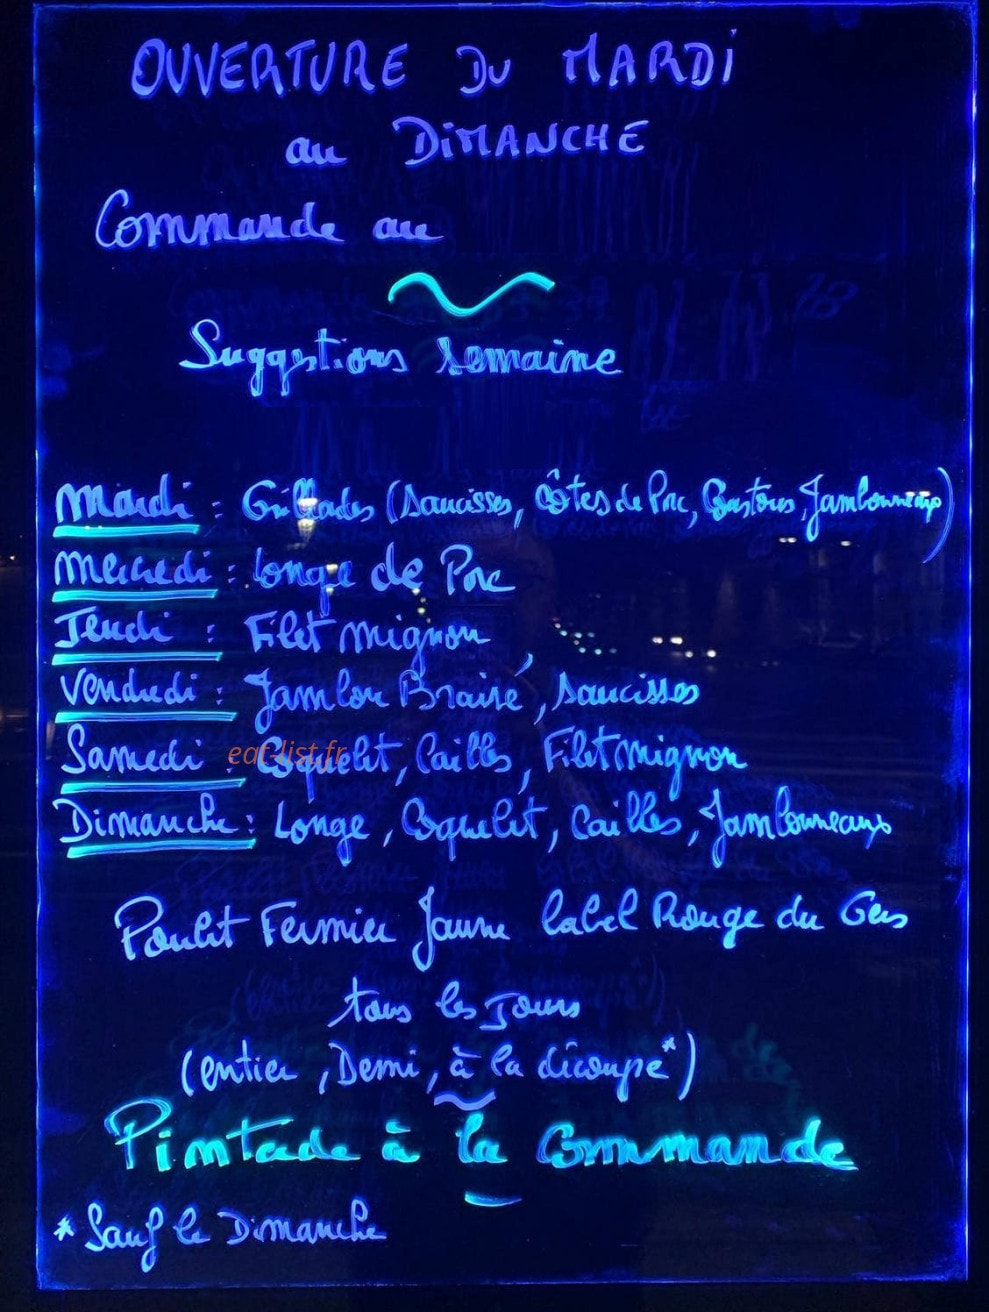 OUVERTURE DU MARDI
au DIMANCHE
Commande au
Suggestions semaine
Mardi : Grillades (saucisses, Côtes de Porc, Coustous, Jambonneaux)
Mercredi : longe de Porc
Jeudi : Filet mignon
Vendredi : Jambon Braisé, saucisses
Samedi : Coquelet, Cailles, Filet mignon
eat-list.fr
Dimanche : Longe, Coquelet, Cailles, Jambonneaux
Poulet Fermier Jaune label Rouge du Gers
tous les Jours
(entier, Demi, à la découpe*)
Pintade à la Commande
* Sauf le Dimanche